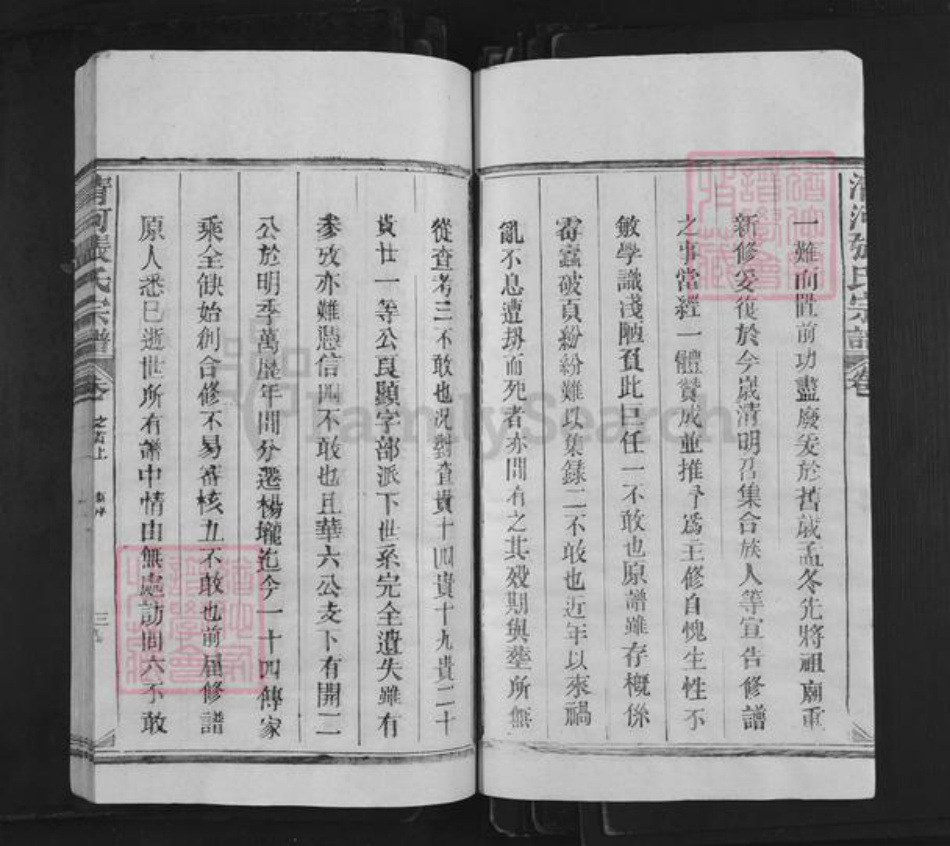 清河張氏宗譜
一難而置前功盡廢爰於舊歲孟冬先將祖廟重
新修妥復於今歲清明召集合族人等宣告修譜
之事當經一體贊成並推予爲主修自愧生性不
敏學識淺陋負此巨任一不敢也原譜雖存概係
霉蠹破頁紛紛難以集録二不敢也近年以來禍
亂不息遭刼而死者亦間有之其殁期與塋所無
從查考三不敢也況對查貴十四貴十九貴二十
貴廿一等公良顯字部派下世系完全遺失雖有
參攷亦難慿信四不敢也且華六公支下有開二
公於明季萬歷年間分遷楊壠迄今一十四傳家
乘全缺始創合修不易審核五不敢也前屆修譜
原人悉已逝世所有譜中情由無處訪問六不敢
清河張氏宗譜
卷之首上
三
FamilySearch